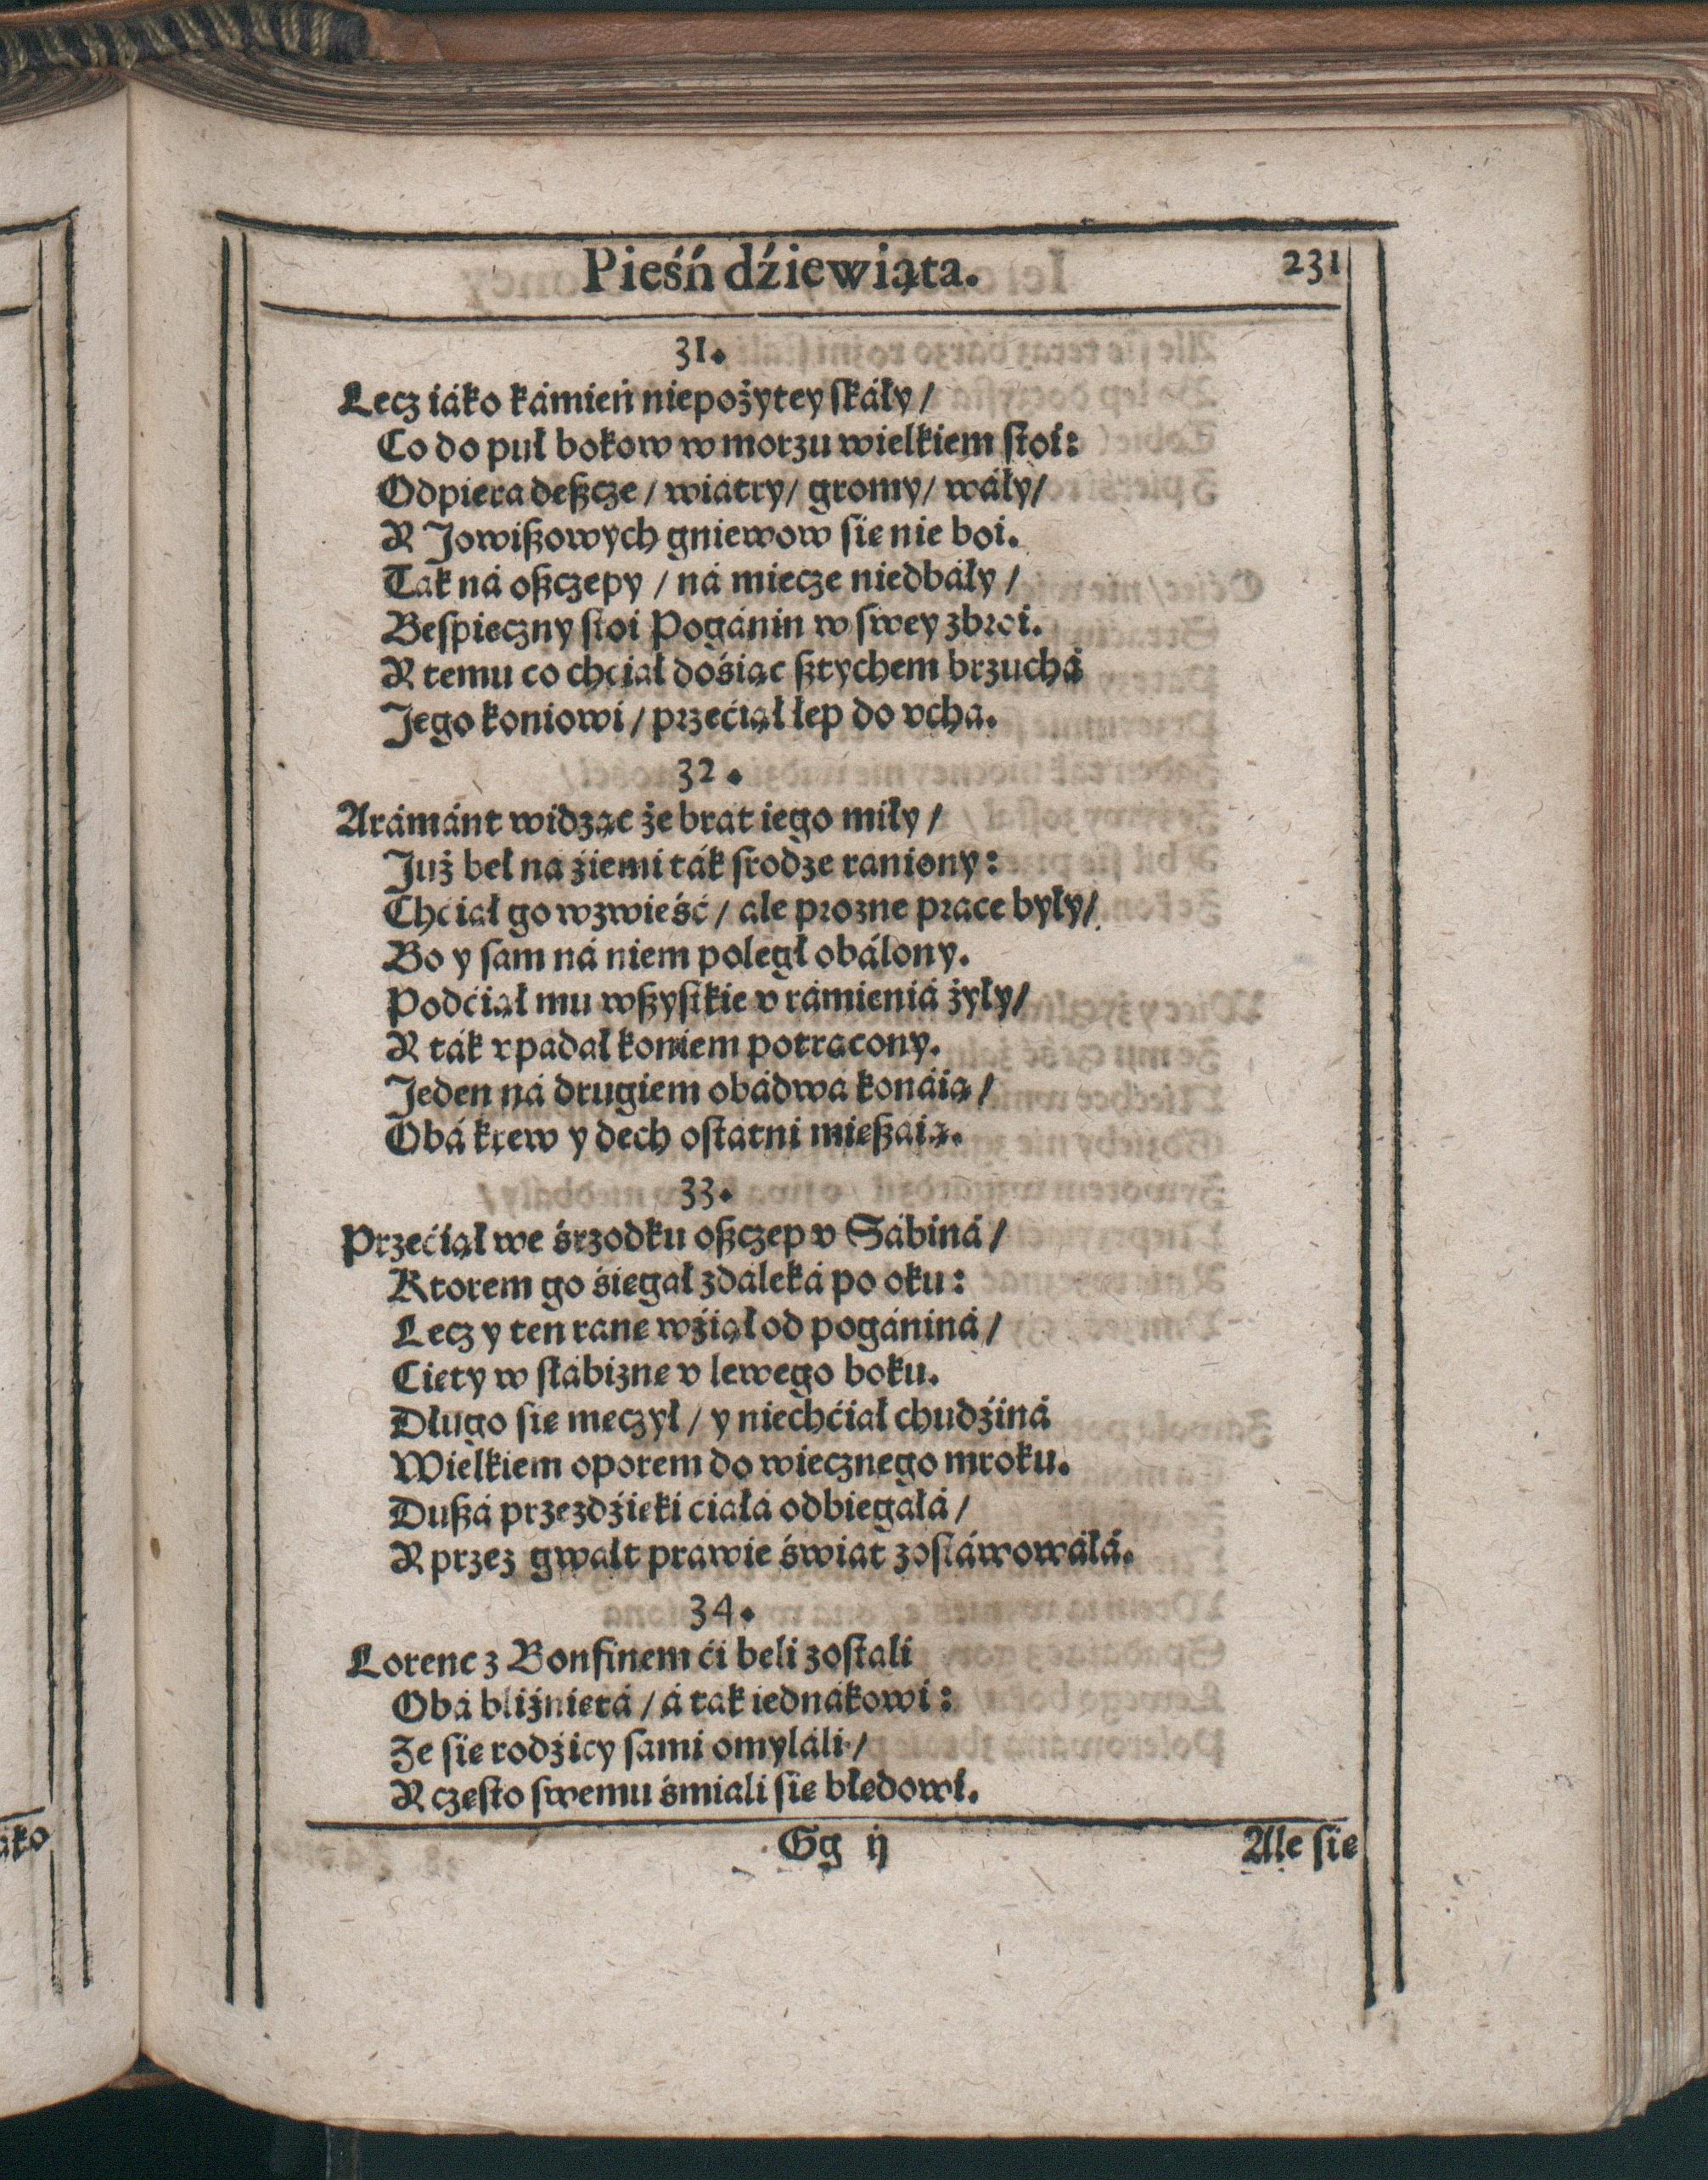 Pieśń dźiewiąta. 231
31.
Lecz iáko kámień niepożytey skáły /
Co do puł bokow w morzu wielkiem stoi:
Odpiera deßcze / wiatry / gromy / wáły /
A Jowißowych gniewow sie nie boi.
Tak ná oßczepy / ná miecze niedbáły /
Bespieczny stoi Pogánin w swey zbroi.
A temu co chciał dośiąc sztychem brzuchá
Jego koniowi / przećiął łep do vcha.
32.
Arámánt widząc że brat iego miły /
Już beł na źiemi ták srodze raniony:
Chciał go wzwieść / ale prozne prace były /
Bo y sam ná niem poległ obálony.
Podćiął mu wßystkie v rámieniá żyły /
A ták vpadał koniem potrącony.
Jeden ná drugiem obádwá konáią /
Obá krew y dech ostatni mießaią.
33.
Przećiął we śrzodku oßczep v Sábiná /
Ktorem go śięgał zdáleká po oku:
Lecz y ten ranę wźiął od pogániná /
Cięty w słábiznę v lewego boku.
Długo się męczył / y niechćiał chudźiná
Wielkiem oporem do wiecznego mroku.
Dußá przezdźięki ciáłá odbiegałá /
A przez gwałt prawie świat zostáwowáłá.
34.
Lorenc z Bonfinem ći beli zostali
Obá bliźniętá / á tak iednákowi:
Ze się rodźicy sami omyláli /
A często swemu śmiali się błędowi.
Gg ij Ale się
ako